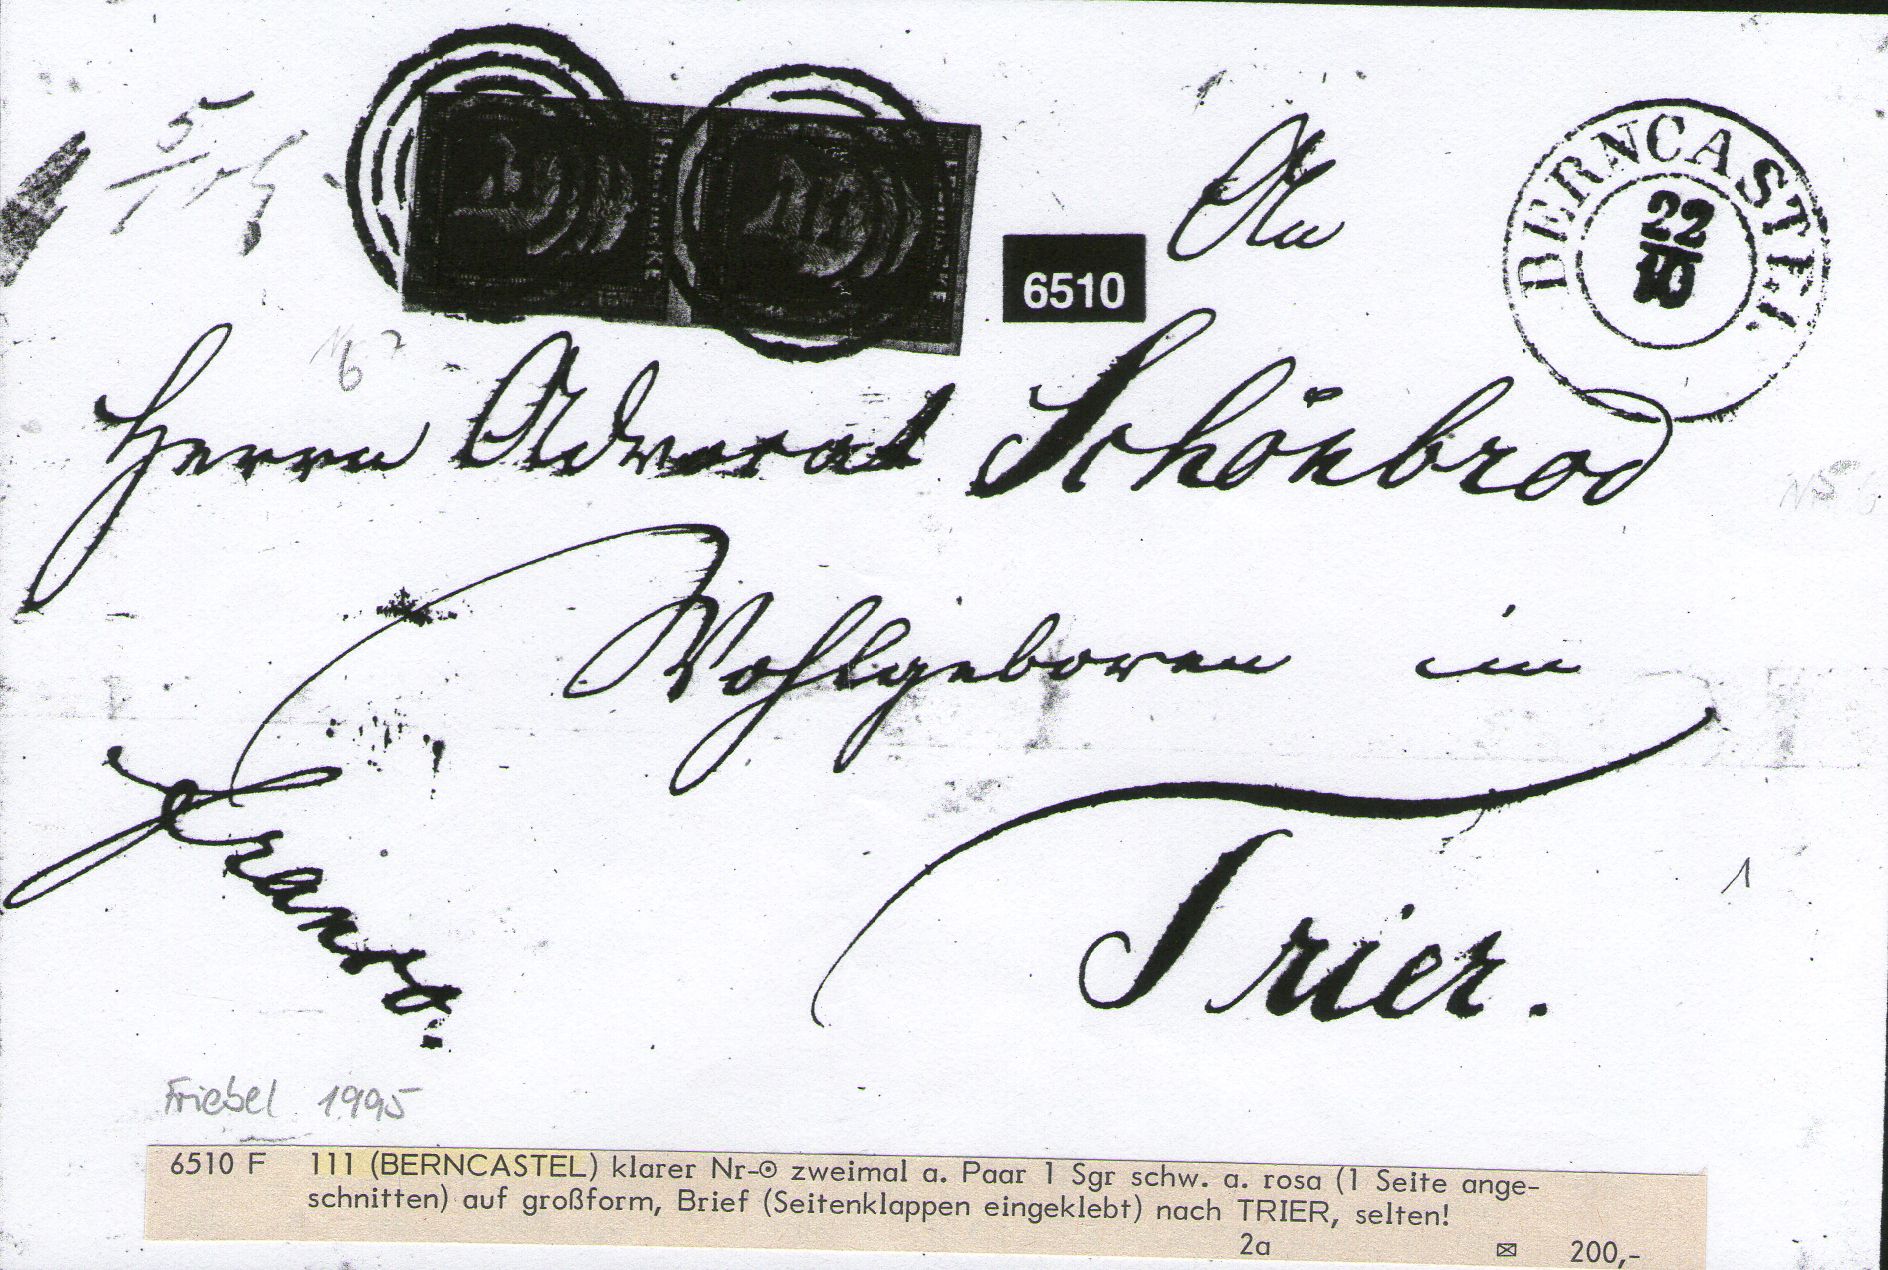 111
111
6510
BERNCASTEL
22
10
An
Herrn Advocat Schönbrod
Wohlgeboren in
Trier.
Franco.
1
Friebel 1995
6510 F 111 (BERNCASTEL) klarer Nr-⊙ zweimal a. Paar 1 Sgr schw. a. rosa (1 Seite ange-
schnitten) auf großform, Brief (Seitenklappen eingeklebt) nach TRIER, selten!
2a ✉ 200,-